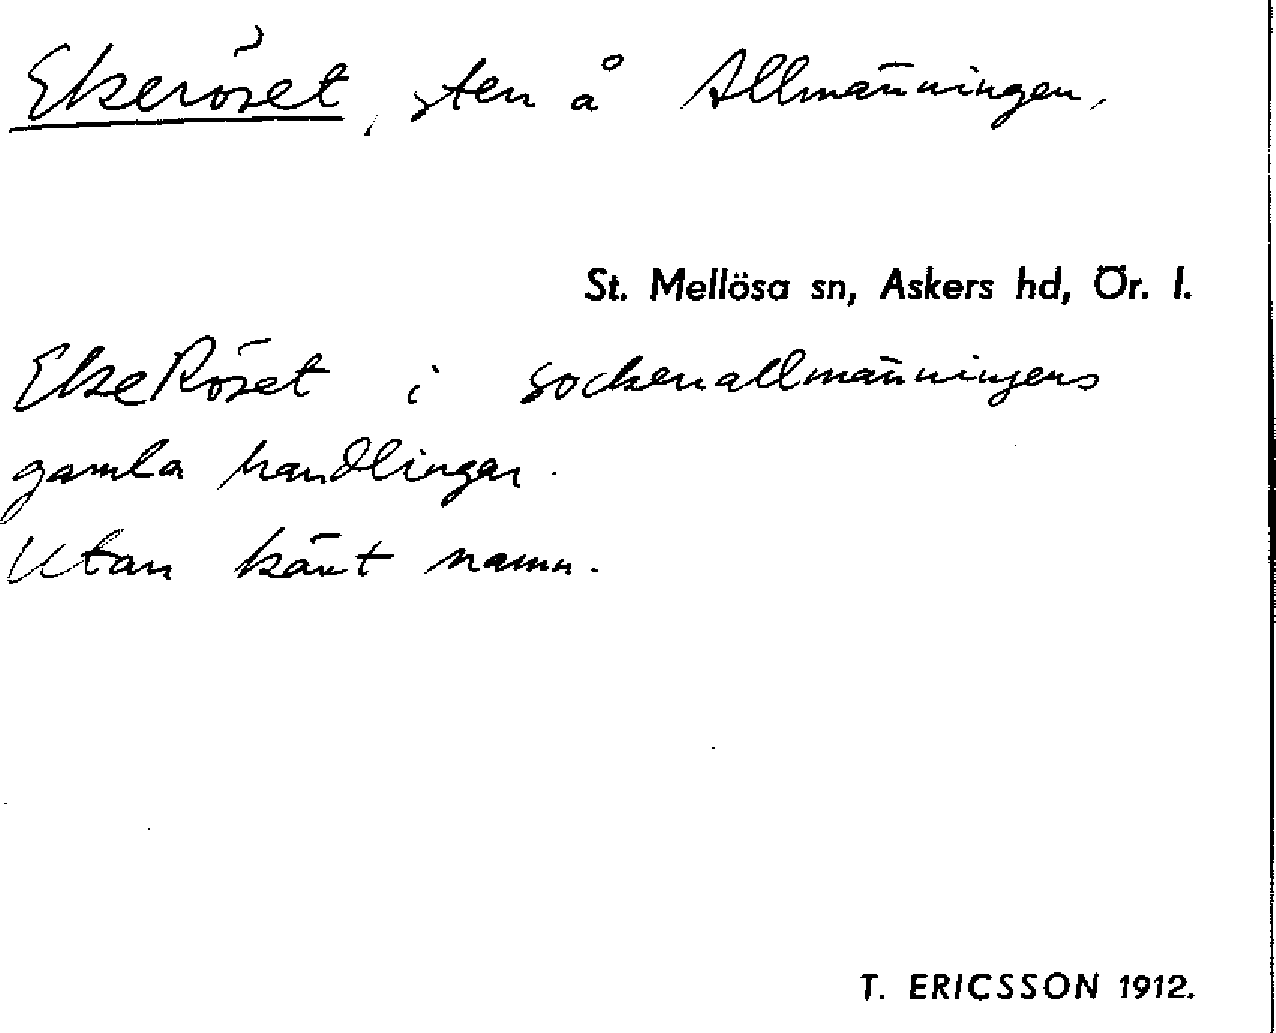 Ekeröset, sten å Allmänningen.
St. Mellösa sn, Askers hd, Ör. l.
EkeRöset i sockenallmänningens
gamla handlingar.
Utan känt namn.
T. ERICSSON 1912.